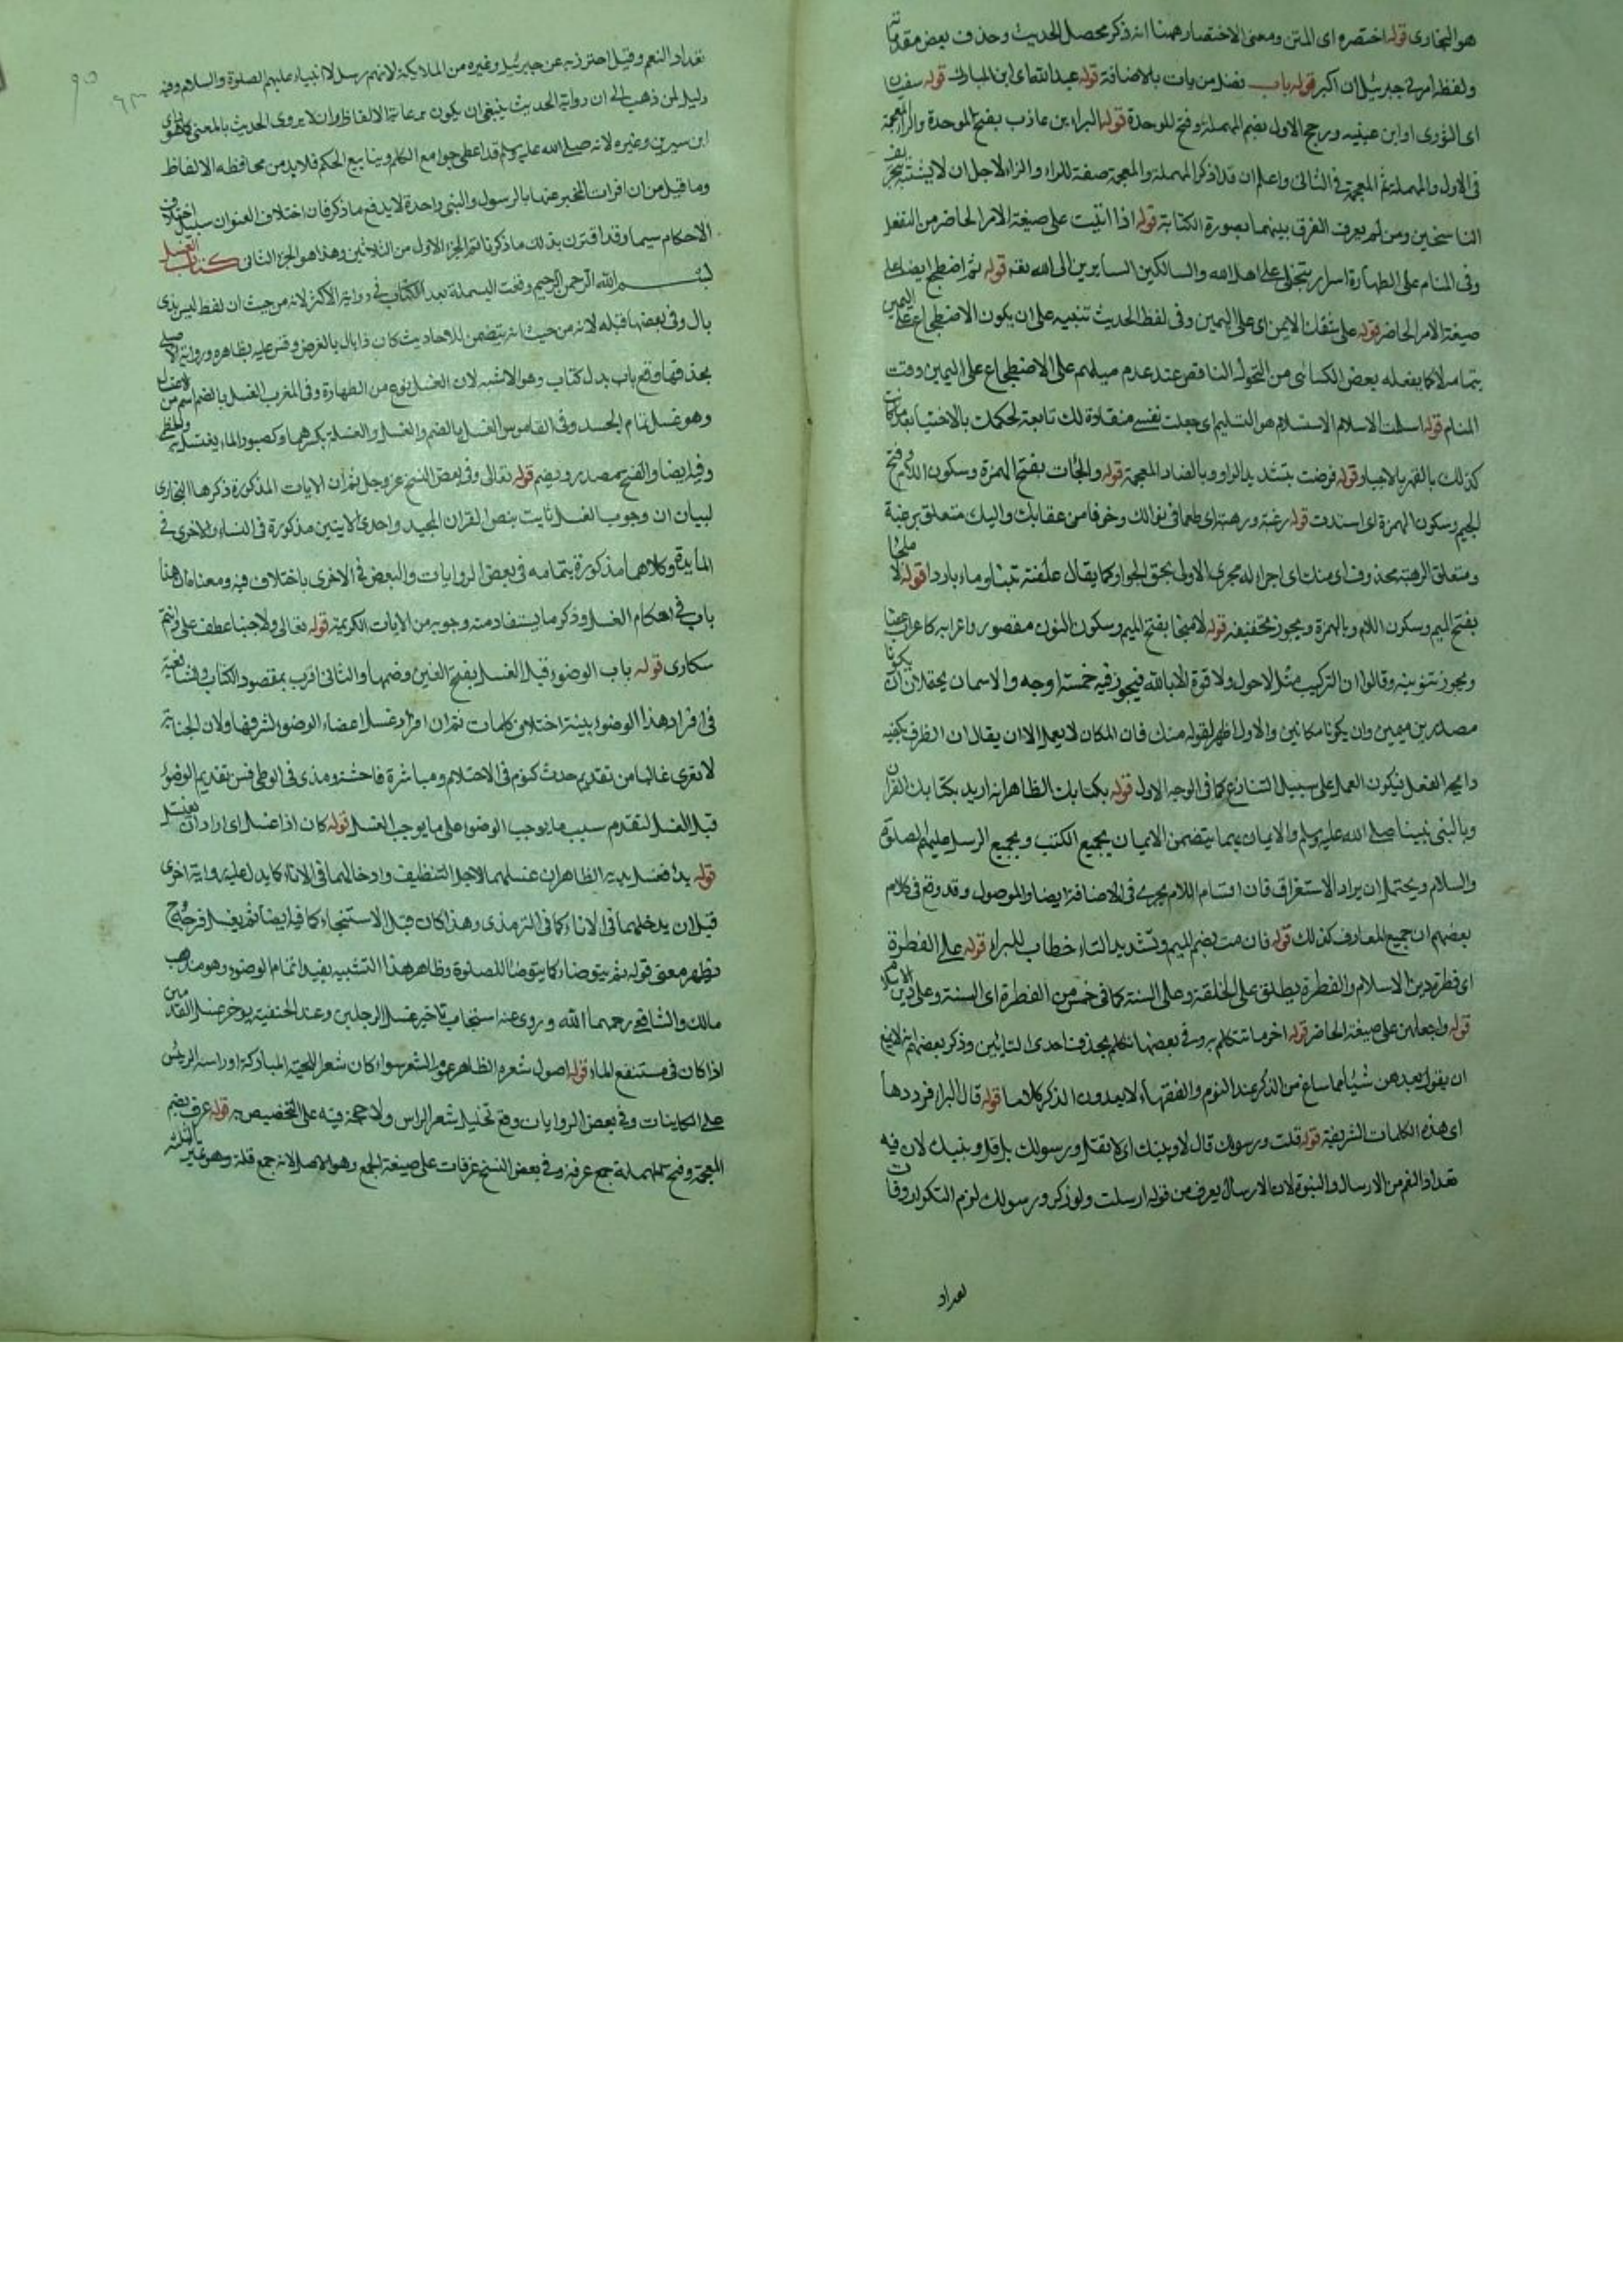 هو البخارى قوله اختصره اى المتن ومعنى الاختصار ههنا انه ذكر محصل الحديث وحذف بعض مقدماته
ولفظه امرنى جبرئيل ان اكبر قوله باب فضل من بات بالاضافة قوله عبد الله اى ابن المبارك قوله سفين
اى الثورى او ابن عيينه ورجح الاول بضم المهملة وفتح الموحدة قوله البراء بن عازب بفتح الموحدة والراء المعجمة
فى الاول والمهملة ثم المعجمة فى الثانى واعلم ان قد اذكر المهملة والمعجمة صفة للراء والزاء لاجل ان لا يشتبه
الناسخين ومن لم يعرف الفرق بينهما بصورة الكتابة قوله اذا اتيت على صيغة الامر الحاضر من التفعل
وفى المنام على الطهارة اسرار يتجلى على اهل الله والسالكين السايرين الى الله قوله ثم اضطجع ايضا على
صيغة الامر الحاضر قوله على شقك الايمن اى على اليمين وفى لفظ الحديث تنبيه على ان يكون الاضطجاع على اليمين
بتمامه لا كما يفعله بعض الكسالى من التحول الناقص عند عدم ميلهم على الاضطجاع على اليمين وقت
المنام قوله اسلمت الاسلام الاستسلام هو التسليم اى جعلت نفسى منقادة لك تابعة لحكمك بالاختيار بعد ما كانت
كذلك بالقهر بالاجبار قوله فوضت بتشديد الواو وبالضاد المعجمة قوله والجات بفتح الهمزة وسكون اللام وفتح
الجيم وسكون الهمزة اى اسندت قوله رغبة ورهبة اى طمعا فى نوالك وخوفا من عقابك واليك متعلق برغبة
ومتعلق الرهبة محذوف اى منك اى اجراء له مجرى الاول بحق الجوار كما يقال علفته تبنا وماء باردا قوله لا ملجأ
بفتح الميم وسكون اللام وبالهمزة ويجوز تخفيفه قوله لا منجا بفتح الميم وسكون النون مقصور واعرابه كاعراب عصا
ويجوز تنوينه وقالوا ان التركيب مثل لا حول ولا قوة الا بالله فيجوز فيه خمسة اوجه والاسمان يحتملان ان يكونا
مصدرين ميميين وان يكونا مكانين والاول اظهر لقوله منك فان المكان لا يعمل الا ان يقال ان الظرف يكفيه
رايحة الفعل فيكون العمل على سبيل التنازع كما فى الوجه الاول قوله بكتابك الظاهر انه اريد بكتابك القران
وبالنبى نبينا صلى الله عليه وسلم والايمان بهما يتضمن الايمان بجميع الكتب وبجميع الرسل عليهم الصلوة
والسلام ويحتمل ان يراد الاستغراق فان اقسام اللام يجرى فى الاضافة ايضا والموصول وقد وقع فى كلام
بعضهم ان جميع المعارف كذلك قوله فان مت بضم الميم وتشديد التاء خطاب للبراء قوله على الفطرة
اى فطرة دين الاسلام والفطرة يطلق على الخلقة وعلى السنة كما فى خمس من الفطرة اى السنة وعلى دين الاسلام
قوله واجعلهن على صيغة الحاضر قوله اخر ما تتكلم به وفى بعضها تكلم بحذف احدى التائين وذكر بعضهم انه لا يمنع
ان يقول بعدهن شيئا مما ساغ من الذكر عند النوم والفقهاء لا يعدون الذكر كلاما قوله قال البراء فرددها
اى هذه الكلمات الشريفة قوله قلت ورسولك قال لا ونبيك اى لا تقل ورسولك بل قل وبنبيك لان فيه
تعداد النعم من الارسال والنبوة لان الارسال يعرف من قوله ارسلت ولو ذكر ورسولك لزم التكرار وفات
تعداد
تعداد النعم وقيل احترز به عن جبرئيل وغيره من الملايكة لانهم رسل لا انبياء عليهم الصلوة والسلام وفيه
دليل لمن ذهب الى ان رواية الحديث ينبغى ان يكون برعاية الالفاظ وان لا يروى الحديث بالمعنى كما هو راى
ابن سيرين وغيره لانه صلى الله عليه وسلم قد اعطى جوامع الكلم وينابيع الحكم فلا بد من محافظة الالفاظ
وما قيل من ان المخبر عنها بالرسول والنبى واحدة لا يدفع ما ذكر فان اختلاف العنوان سبيل اختلاف
الاحكام سيما وقد اقترن بذلك ما ذكرنا تم الجزء الاول من الثلاثين وهذا هو الجزء الثانى كتاب الغسل
بسم الله الرحمن الرحيم وقعت البسملة بعد الكتاب فى رواية الاكثر لانه من حيث ان لفظ ليس بذى
بال وفى بعضها قبله لانه من حيث انه يتضمن للاحاديث كان ذا بال بالغرض وقس عليه بظاهره ورواية الاصيلى
بحذفها وقع باب بدل كتاب وهو الاشبه لان الغسل نوع من الطهارة وفى المغرب الغسل بالضم اسم من الاغتسال
وهو غسل تمام الجسد وفى القاموس الغسل بالضم والغسل والغسلة بكسرهما وكصبور الماء يغتسل به
وفيه ايضا والفتح مصدر ويضم قوله تعالى وفى بعض النسخ عز وجل ثم ان الايات المذكورة ذكرها البخارى
لبيان ان وجوب الغسل ثابت بنص القران المجيد واحدى الايتين مذكورة فى النساء والاخرى فى
المائدة وكلاهما مذكورة بتمامه فى بعض الروايات والبعض فى الاخرى باختلاف فيه ومعناه ان هنا
باب فى احكام الغسل وذكر ما يستفاد منه وجوبه من الايات الكريمة قوله تعالى ولا جنبا عطف على وانتم
سكارى قوله باب الوضوء قبل الغسل بفتح الغين وضمها والثانى اقرب بمقصود الكتاب
فى افراد هذا الوضوء بينة اختلافى كلمات ثم ان افراد غسل اعضاء الوضوء لشرفها ولان الجنابة
لا تعرى غالبا من تقديم حدث كنوم فى الاحتلام ومباشرة فاحشة ومذى فى الوطى فسن تقديم الوضوء
قبل الغسل لتقدم سبب ما يوجب الوضوء على ما يوجب الغسل قوله كان اذا اغتسل اى اراد ان يغتسل
قوله بدا فغسل يديه الظاهر ان غسلهما لاجل التنظيف وادخالهما فى الاناء كما يدل عليه رواية اخرى
قبل ان يدخلهما فى الاناء كما فى الترمذى وهذا كان قبل الاستنجاء كما فيه ايضا ثم يغسل فرجه ح
فظهر معنى قوله ثم يتوضا كما يتوضا للصلوة وظاهر هذا التشبيه يفيد اتمام الوضوء وهو مذهب
مالك والشافعى رحمهما الله وروى عنه استحباب تاخير غسل الرجلين وعند الحنفية يوخر غسل القدمين
اذا كان فى مستنقع الماء قوله اصول شعره الظاهر عموم الشعر سواء كان شعر اللحية المباركة او راسه الرئيس
على الكاينات وفى بعض الروايات وقع تخليل شعر الراس ولا حجة فيه على التخصيص به قوله غرف بضم
المعجمة وفتح المهملة جمع غرفة وفى بعض النسخ غرفات على صيغة الجمع وهو الاصل لانه جمع قلة وهو مميز الثلثة